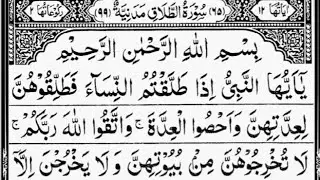 اٰیَاتُهَا ١٢ (٦٥) سُوْرَةُ الطَّلَاقِ مَدَنِیَّةٌ (٩٩) رُكُوْعَاتُهَا ٢
بِسْمِ اللّٰهِ الرَّحْمٰنِ الرَّحِیْمِ
یٰۤاَیُّهَا النَّبِیُّ اِذَا طَلَّقْتُمُ النِّسَآءَ فَطَلِّقُوْهُنَّ
لِعِدَّتِهِنَّ وَاَحْصُوا الْعِدَّةَ ۚ وَاتَّقُوا اللّٰهَ رَبَّكُمْ ۚ
لَا تُخْرِجُوْهُنَّ مِنْۢ بُیُوْتِهِنَّ وَلَا یَخْرُجْنَ اِلَّاۤ